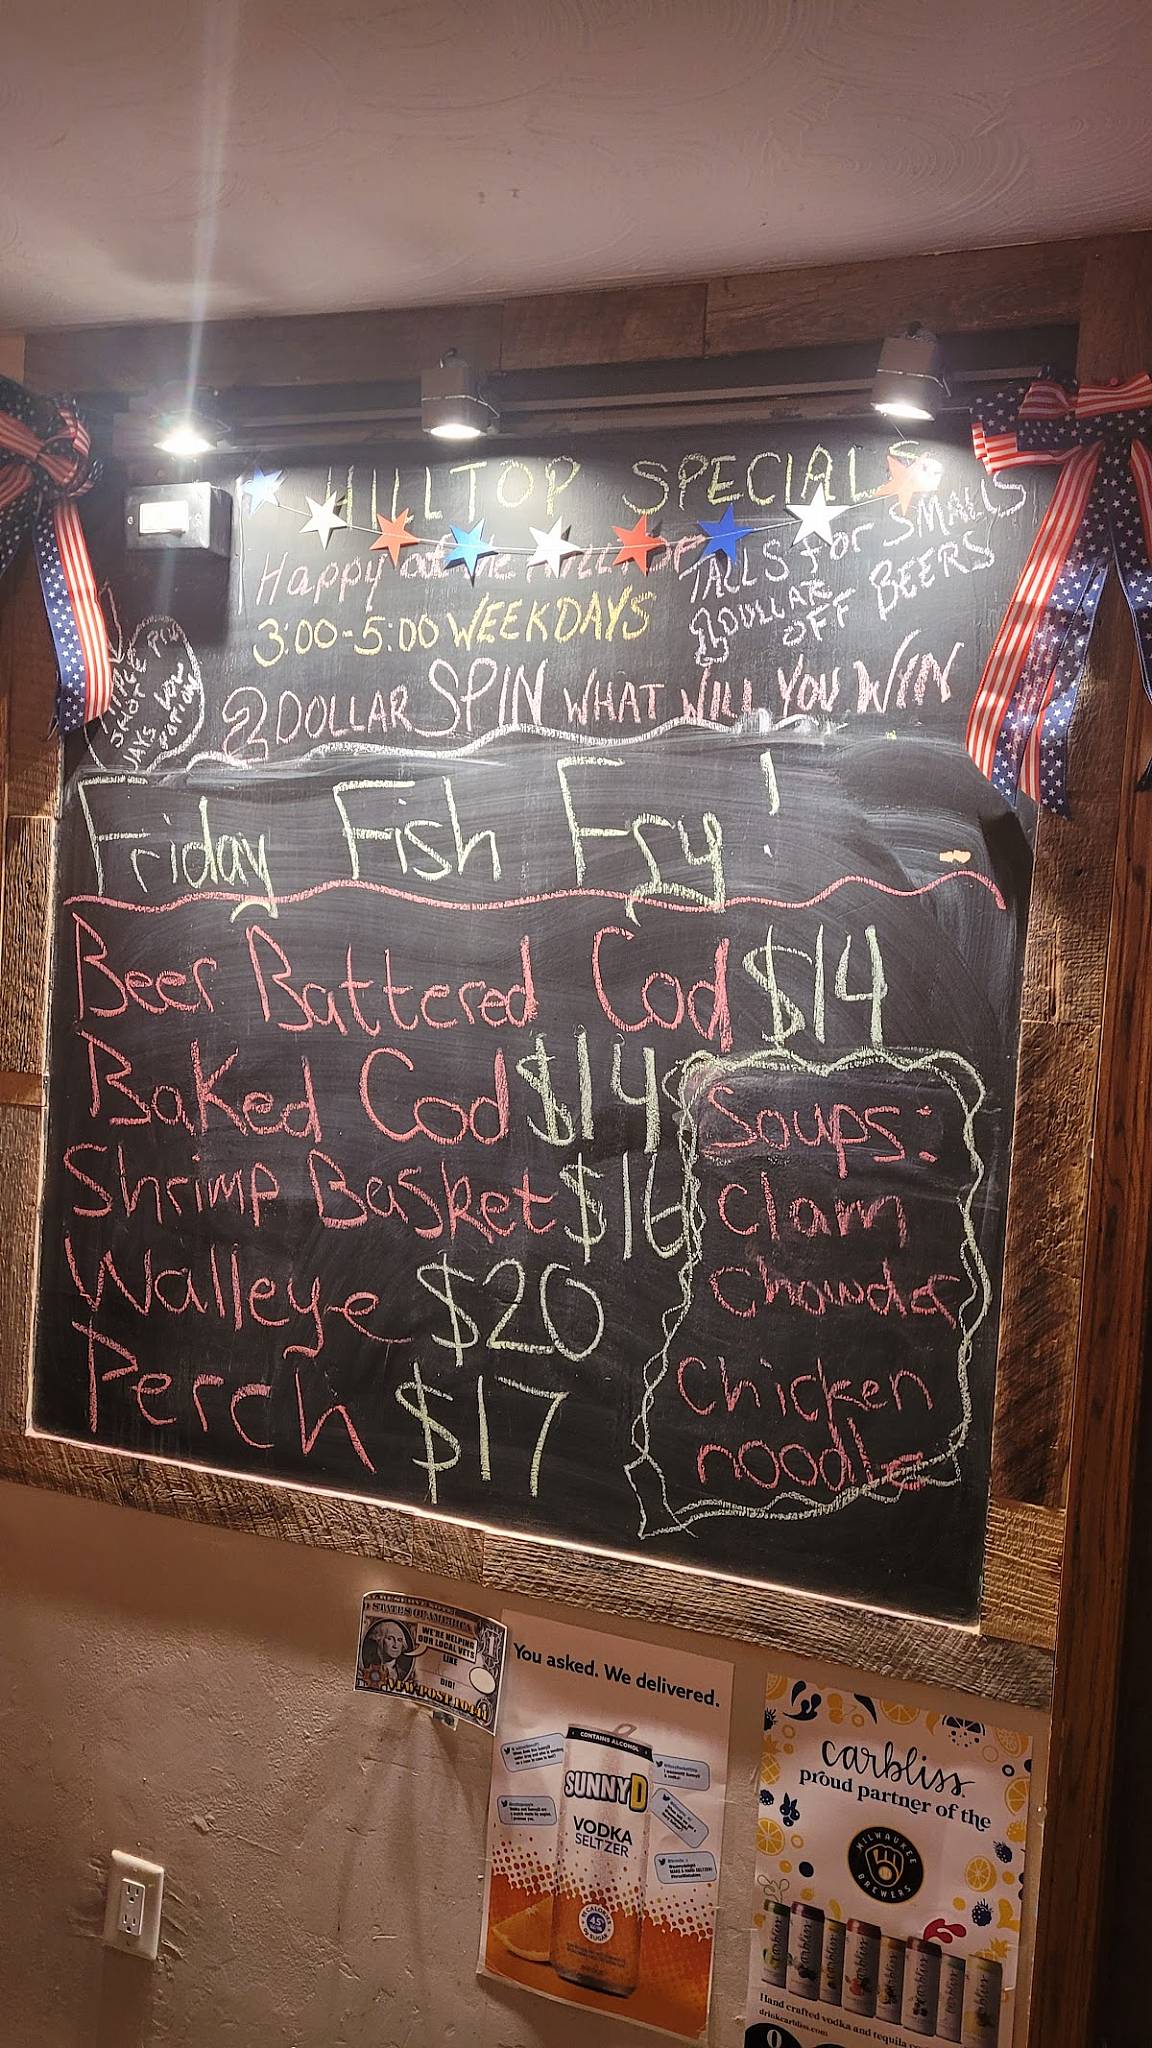 HILLTOP SPECIALS
Happy at the HILLTOP
3:00-5:00 WEEKDAYS
TALLS for SMALLS
2 DOLLAR
OFF BEERS
2 DOLLAR SPIN WHAT WILL YOU WIN
Friday Fish Fry!
Beer Battered Cod $14
Baked Cod $14
Shrimp Basket $16
Walleye $20
Perch $17
Soups:
Clam
Chowder
Chicken
noodle
D STATES OF AMERICA
WE'RE HELPING
OUR LOCAL VETS
LIKE
DID!
You asked. We delivered.
CONTAINS ALCOHOL
SUNNYD
VODKA
SELTZER
carbliss
proud partner of the
MILWAUKEE
BREWERS
Hand crafted vodka and tequila
drinkcarbliss.com